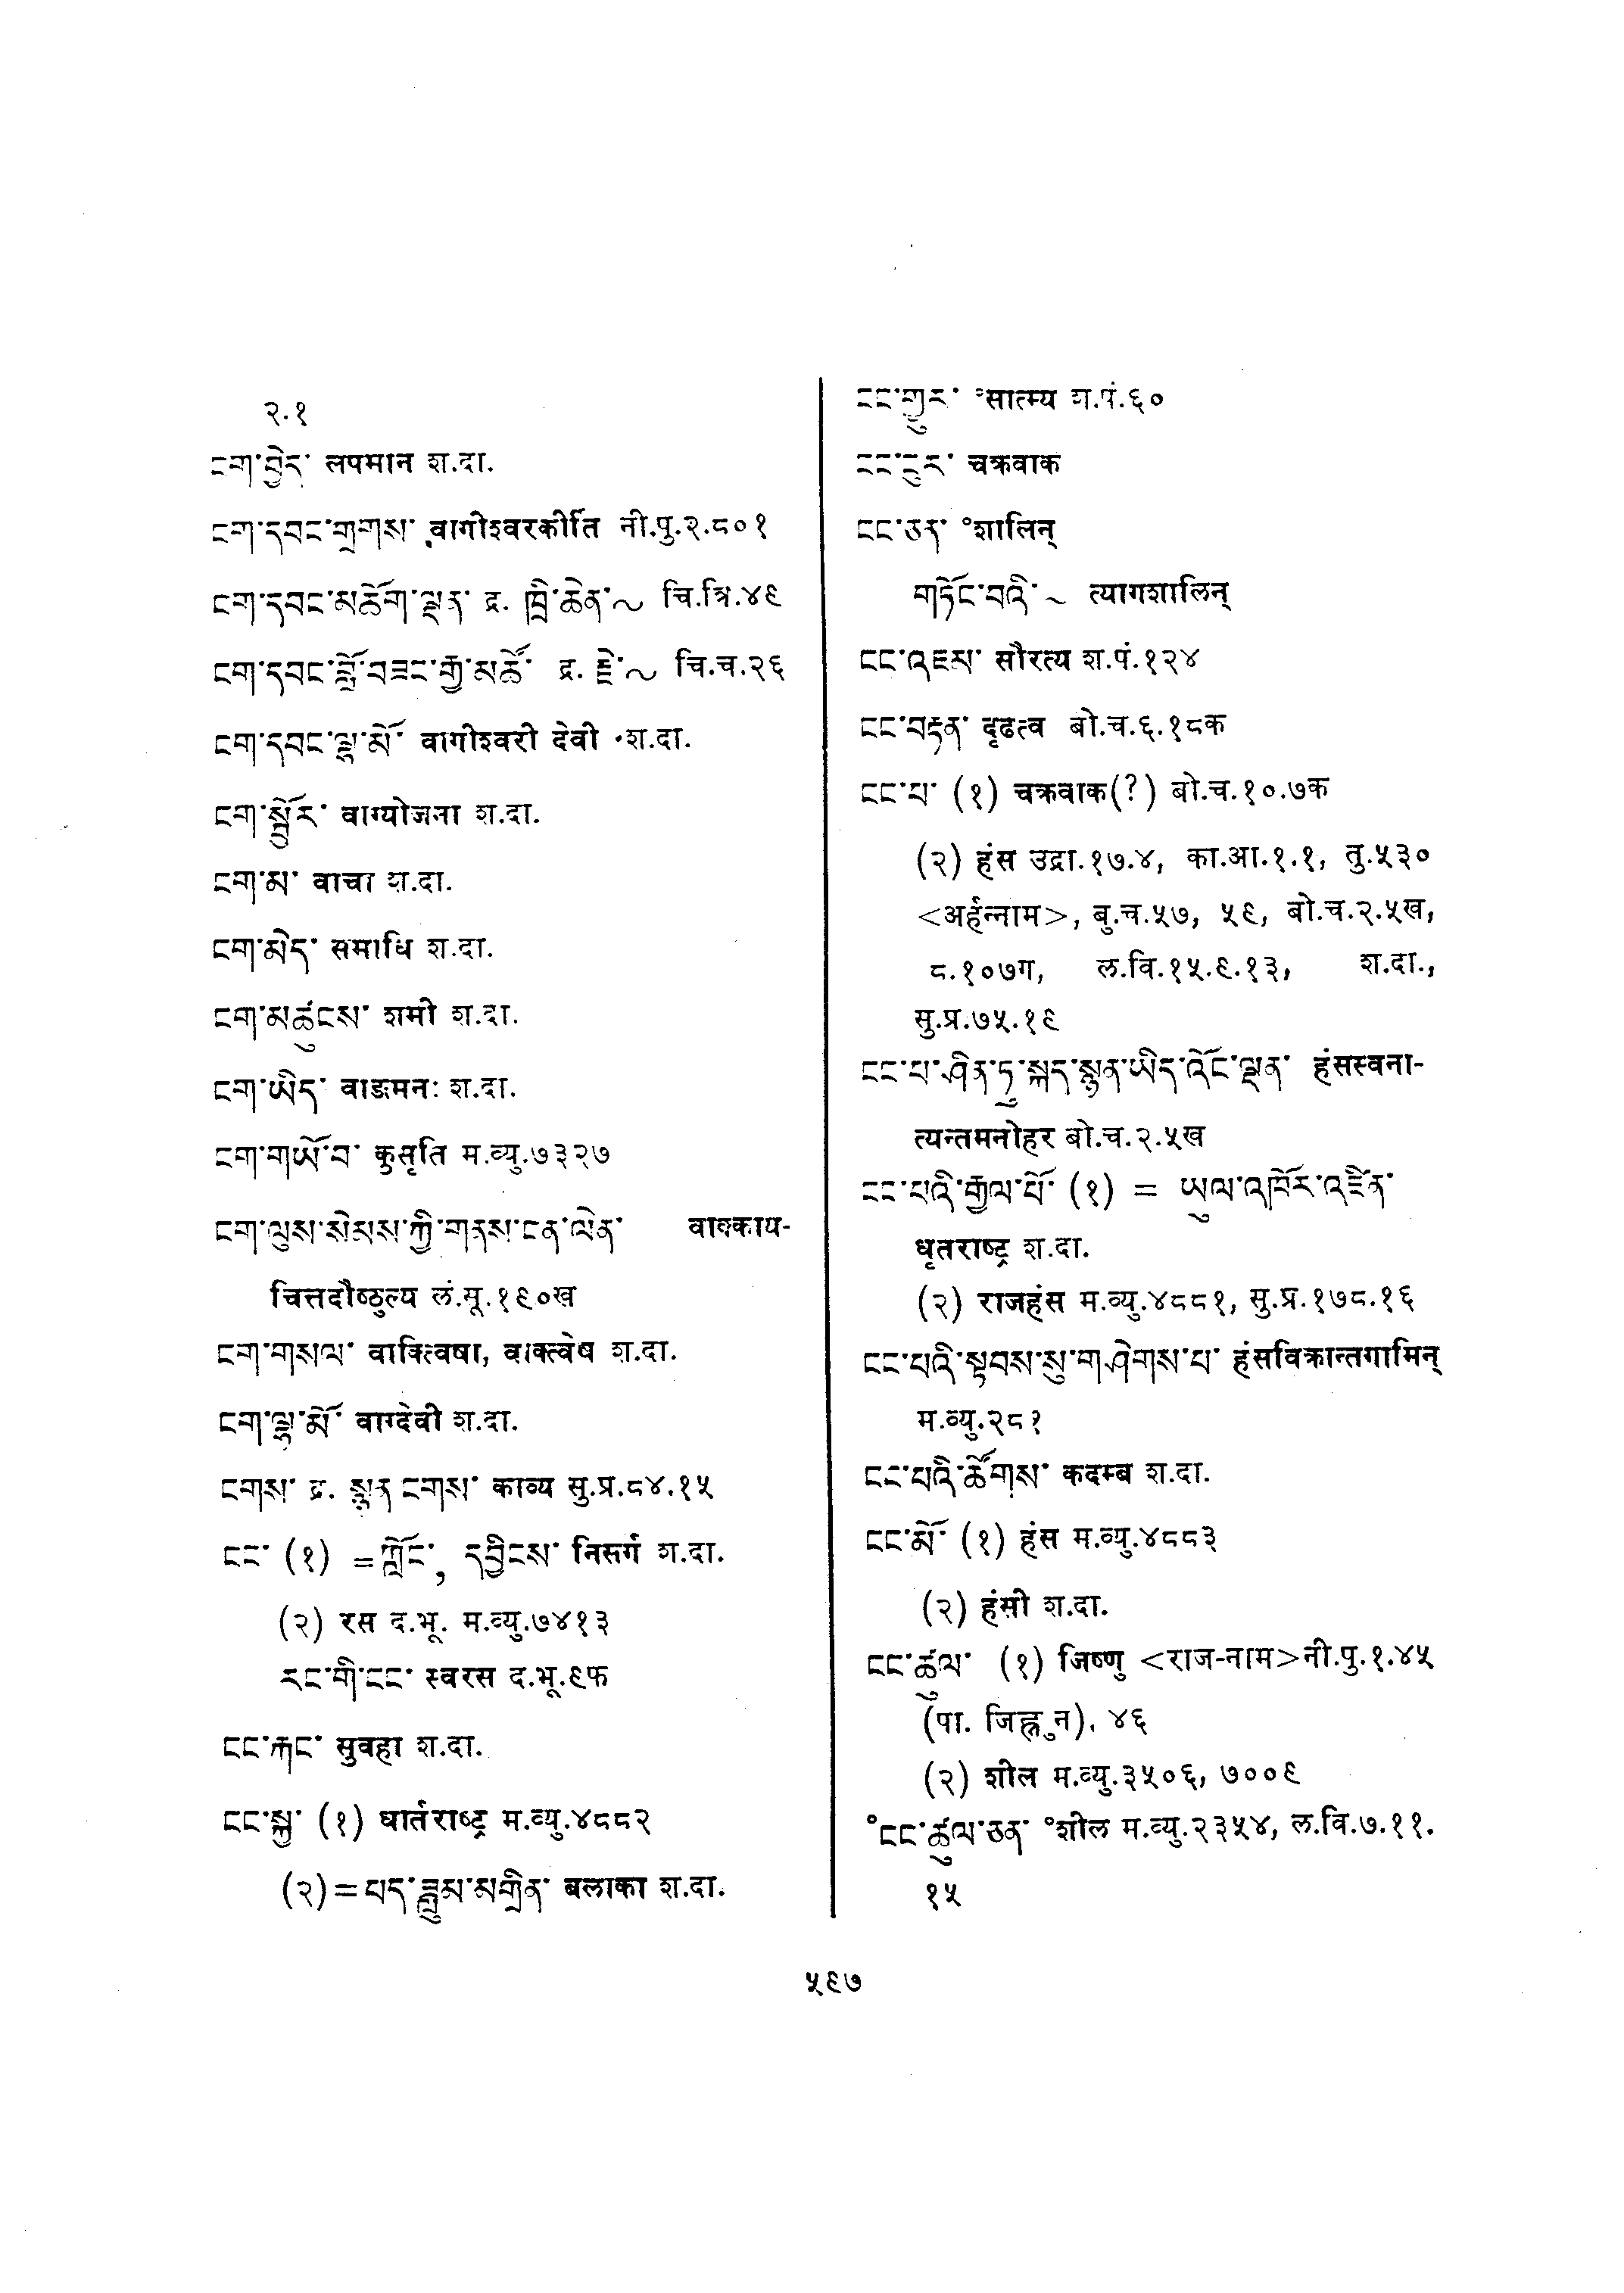 २.१
ངག་བྱེད་ लपमान श.दा.
ངག་དབང་གྲགས་ वागीश्वरकीर्ति नी.पु.२.८०१
ངག་དབང་མཆོག་ལྡན་ द्र. ཁྲི་ཆེན་~ चि.त्रि.४९
ངག་དབང་བློ་བཟང་རྒྱ་མཚོ་ द्र. རྗེ་~ चि.च.२६
ངག་དབང་ལྷ་མོ་ वागीश्वरी देवी श.दा.
ངག་སྦྱོར་ वाग्योजना श.दा.
ངག་མ་ वाचा श.दा.
ངག་མེད་ समाधि श.दा.
ངག་མཚུངས་ शमी श.दा.
ངག་ཡིད་ वाङमनः श.दा.
ངག་གཡོ་བ་ कुसृति म.व्यु.७३२७
ངག་ལུས་སེམས་ཀྱི་གནས་ངན་ལེན་ वाक्काय-
चित्तदौष्ठुल्य लं.सू.१९०ख
ངག་གསལ་ वाक्त्विषा, वाक्त्वेष श.दा.
ངག་ལྷ་མོ་ वाग्देवी श.दा.
ངགས་ द्र. སྙན་ངགས་ काव्य सु.प्र.८४.१५
ངང་ (१) =ཀློང་, དབྱིངས་ निसर्ग श.दा.
(२) रस द.भू. म.व्यु.७४१३
རང་གི་ངང་ स्वरस द.भू.९फ
ངང་རྐང་ सुवहा श.दा.
ངང་སྐྱ་ (१) धार्तराष्ट्र म.व्यु.४८८२
(२)=པད་ཟླུམ་མགྲིན་ बलाका श.दा.
ངང་གྱུར་ °सात्म्य श.पं.६०
ངང་ངུར་ चक्रवाक
ངང་ཅན་ °शालिन्
གཏོང་བའི་ ~ त्यागशालिन्
ངང་འཇམ་ सौरत्य श.पं.१२४
ངང་བརྟན་ दृढत्व बो.च.६.१८क
ངང་པ་ (१) चक्रवाक(?) बो.च.१०.७क
(२) हंस उद्रा.१७.४, का.आ.१.१, तु.५३०
<अर्हन्नाम>, बु.च.५७, ५९, बो.च.२.५ख,
८.१०७ग, ल.वि.१५.९.१३, श.दा.,
सु.प्र.७५.१९
ངང་པ་ཤིན་ཏུ་སྐད་སྙན་ཡིད་འོང་ལྡན་ हंसस्वना-
त्यन्तमनोहर बो.च.२.५ख
ངང་པའི་རྒྱལ་པོ་ (१) = ཡུལ་འཁོར་འཛིན་
धृतराष्ट्र श.दा.
(२) राजहंस म.व्यु.४८८१, सु.प्र.१७८.१६
ངང་པའི་སྟབས་སུ་གཤེགས་པ་ हंसविक्रान्तगामिन्
म.व्यु.२८१
ངང་པའི་ཚོགས་ कदम्ब श.दा.
ངང་མོ་ (१) हंस म.व्यु.४८८३
(२) हंसी श.दा.
ངང་ཚུལ་ (१) जिष्णु <राज-नाम>नी.पु.१.४५
(पा. जिह्नुन). ४६
(२) शील म.व्यु.३५०६, ७००९
°ངང་ཚུལ་ཅན་ °शील म.व्यु.२३५४, ल.वि.७.११.
१५
५९७